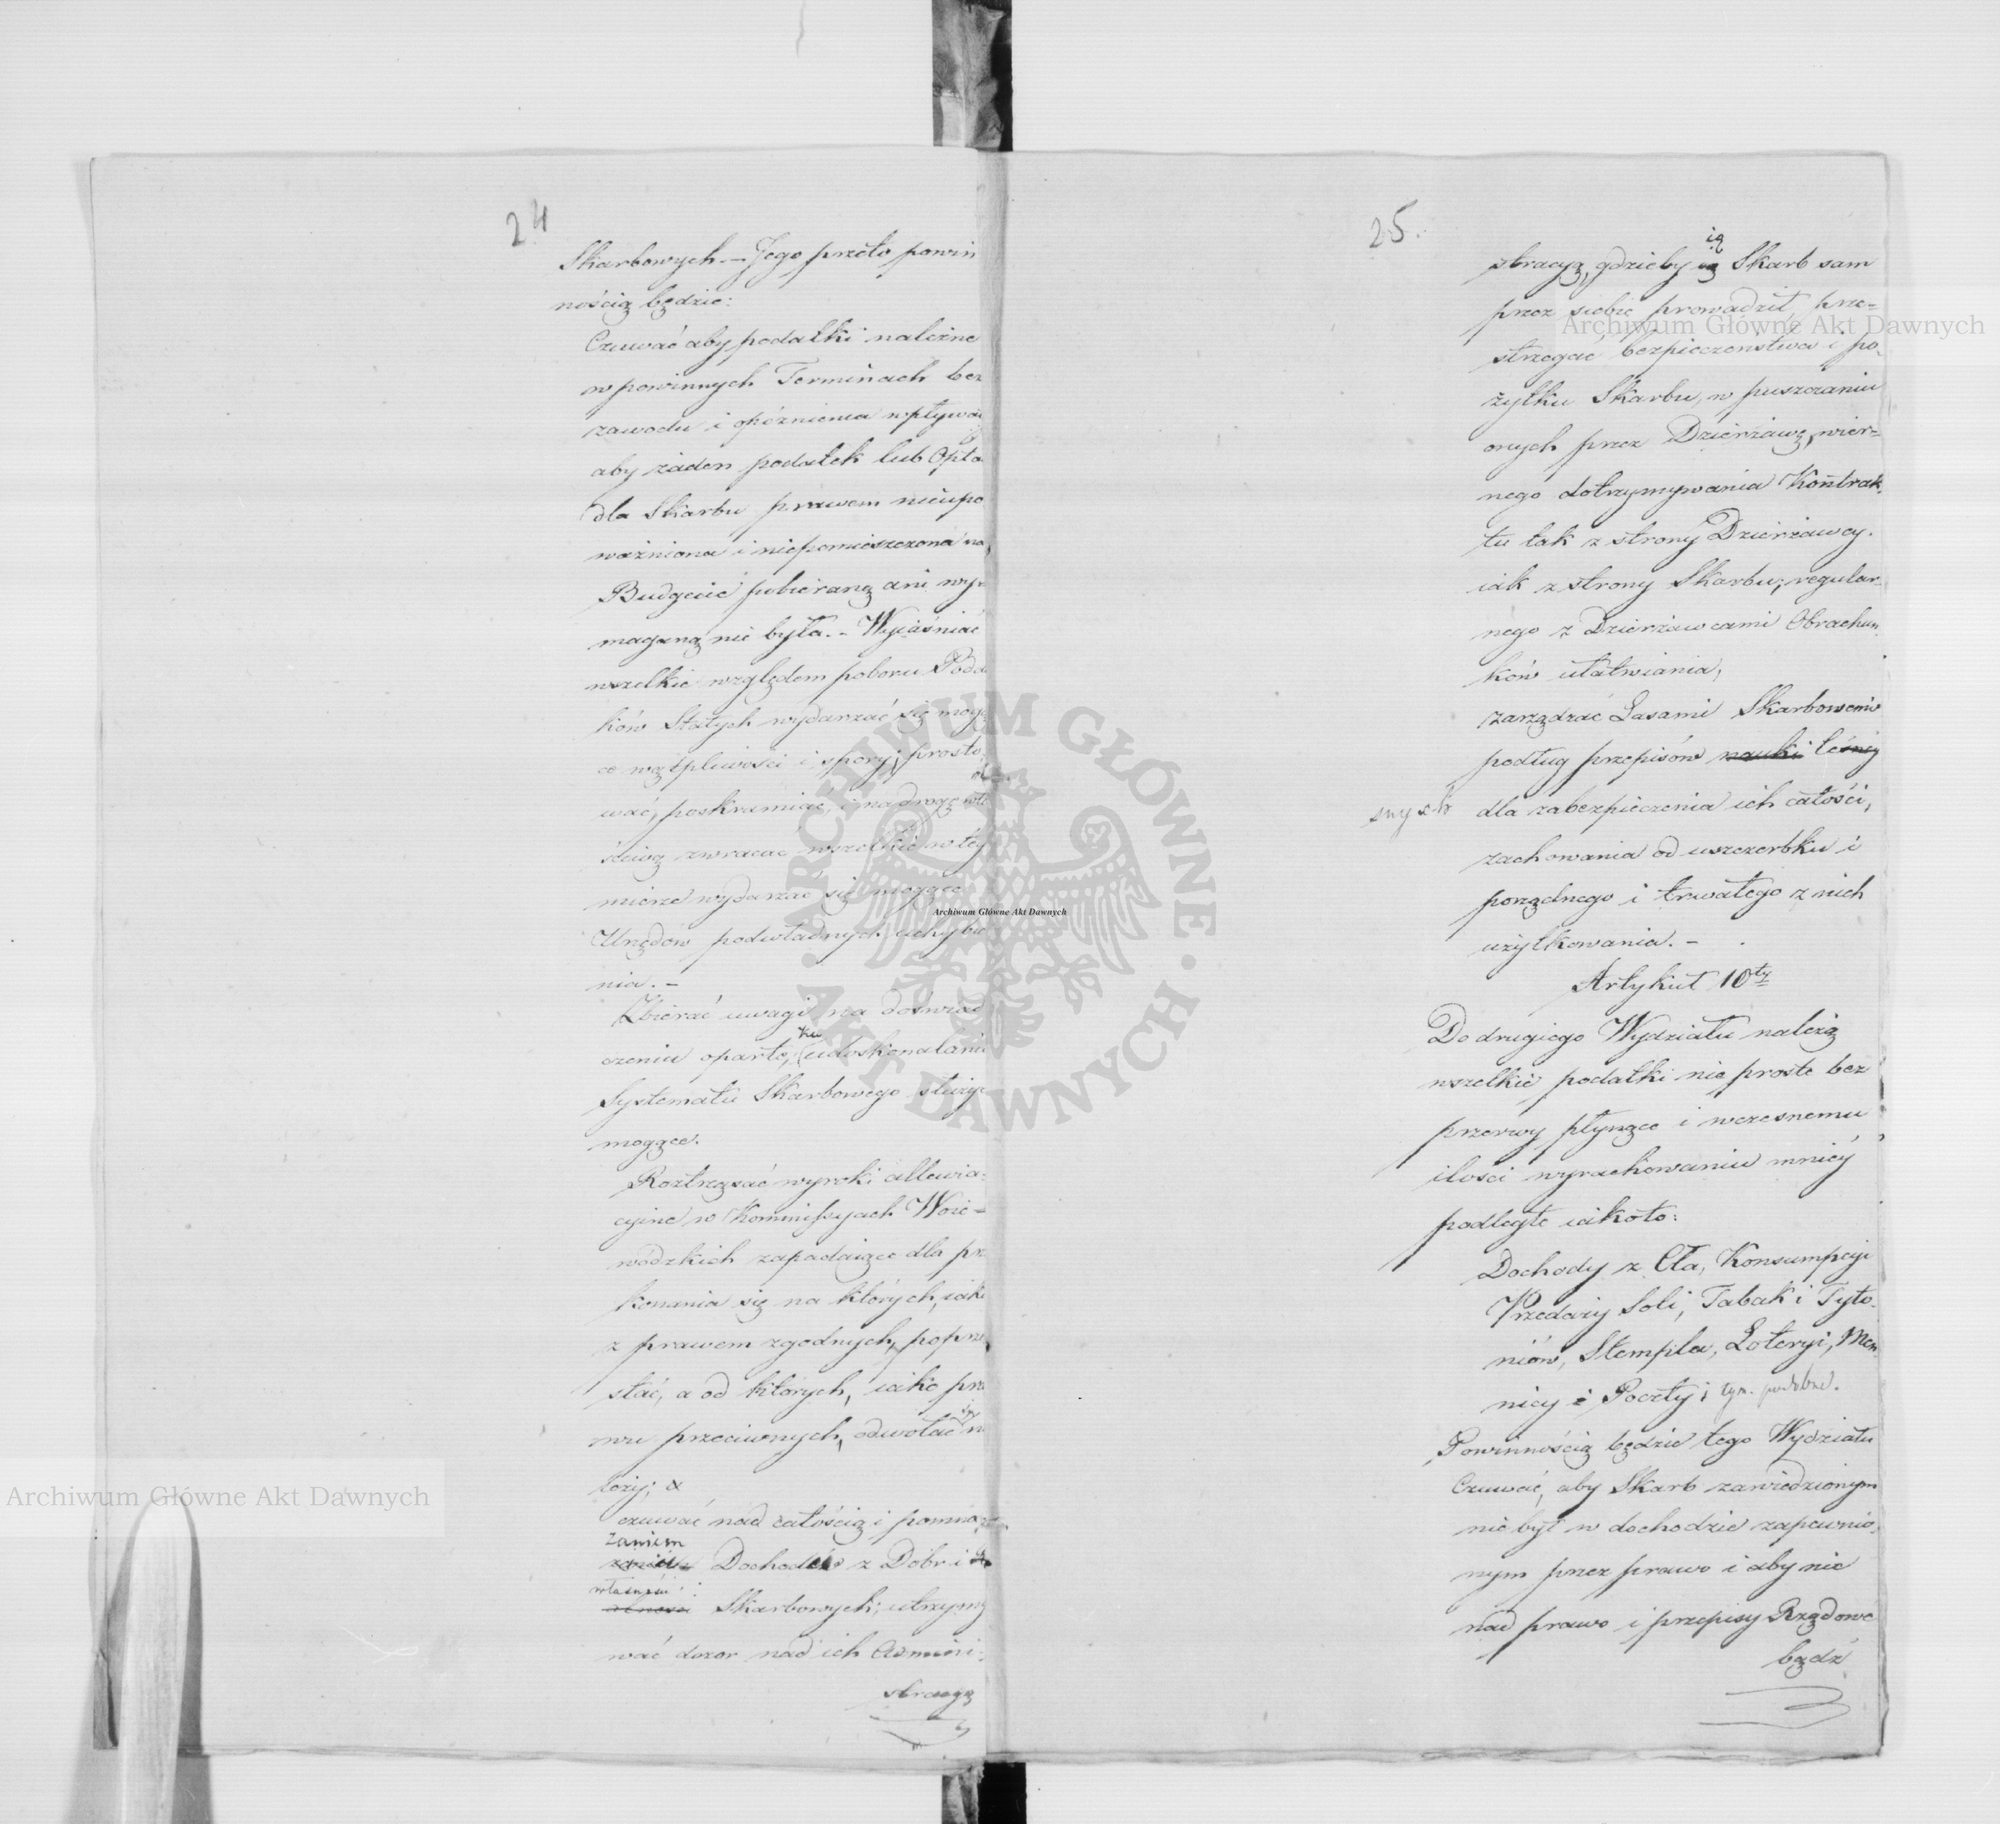 24
Skarbowych. – Jego przeto powin
nością będzie:
Czuwać aby podatki należne
w powinnych Terminach bez
zawodu i opóźnienia wpływały
aby żaden podatek lub Opła
dla Skarbu prawem nieupo
ważniona i niepomieszczona na
Budgecie pobieraną ani wy-
maganą nie była. – Wyjaśniać
wszelkie względem poboru Poda
tków Stałych wydarzać się mogą
ce wątpliwości i spory, prosto
wać, poskramiać, i na drogę wła
ściwą zwracać wszelkie w tey
mierze wydarzać się mogące
Urzędów podwładnych uchybie
nia. –
Zbierać uwagi na doświad
czeniu oparte, ku udoskonaleniu
Systematu Skarbowego służyć
mogące.
Roztrząsać wyroki allewia-
cyine w Kommissyach Woie-
wódzkich zapadaiące dla prze
konania się na których, iako
z prawem zgodnych, poprze
stać, a od których, iako pra
wu przeciwnych, odwołać się na
leży; &
czuwać nad całością i pomna
żaniem
Dochodów z Dóbr i
własności
Skarbowych; utrzymy
wać dozor nad ich Admini-
stracyą
25.
ią
stracyą, gdzieby Skarb sam
przez siebie prowadził prze-
strzegać bezpieczenstwa i po-
żytku Skarbu, w puszczaniu
onych przez Dzierżawę, wier-
nego dotrzymywania Kontrak-
tu tak z strony Dzierżawcy.
iak z strony Skarbu; regular-
nego z Dzierżawcami Obrachun-
ków ułatwiania;
zarządzać Lasami Skarbowemi
podług przepisów nauki leśney
snych dla zabezpieczenia ich całości,
zachowania od uszczerbku i
porządnego i trwałego z nich
użytkowania. –
Artykuł 10ty
Do drugiego Wydziału należą
wszelkie podatki nie proste bez
przerwy płynące i wczesnemu
ilości wyrachowaniu mniéy
podległe iakoto:
Dochody z Cła, Konsumpcyi
Przedaży Soli, Tabak i Tyto-
niów, Stempla, Loteryi, Men-
nicy i Poczty i tym. podobne.
Powinnością będzie tego Wydziału
Czuwać, aby Skarb zawiedzionym
nie był w dochodzie zapewnio-
nym przez prawo i aby nic
nad prawo i przepisy Rządowe
bądź
Archiwum Główne Akt Dawnych
Archiwum Główne Akt Dawnych
Archiwum Główne Akt Dawnych
ARCHIWUM GŁÓWNE · AKT DAWNYCH ·